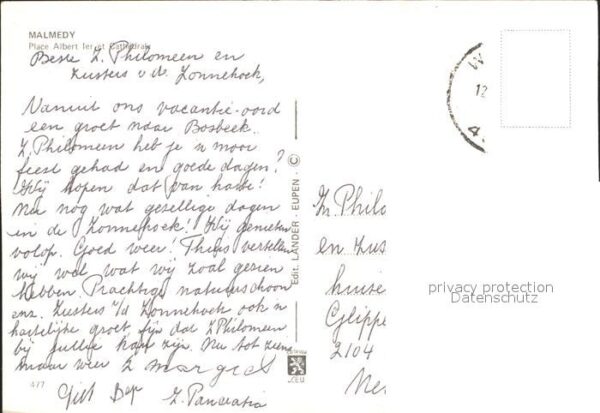 MALMEDY
Place Albert Ier et Cathédrale
Beste Z. Philomeen en
zusters v de Zonnehoek,
Vanuit ons vacantie-oord
een groet naar Bosbeek.
Z. Philomeen heb je 'n mooi
feest gehad en goede dagen?
Wij hopen dat van harte!
Nu nog wat gezellige dagen
in de Zonnehoek! Wij genieten
volop. Goed weer! Thuis vertellen
wij wel wat wij zoal gezien
hebben. Prachtige natuurschoon
enz. Zusters v/d Zonnehoek ook 'n
hartelijke groet fijn dat Z Philomeen
bij jullie kan zijn. Nu tot ziens
maar weer Z
Z. Pancratia
4/7
Edit. LANDER - EUPEN - ©
CEU
W
12
4
Zr. Philo
en zus
huize
Glippe
2104
privacy protection
Datenschutz